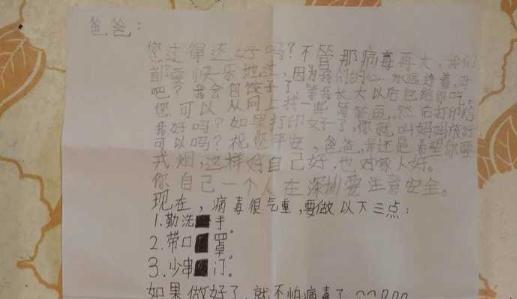 爸爸:
您过得还好吗?不管那病毒再大,我们
都要快乐地过,因为我们的心永远连着,对
吧?我会包饺子了,等我长大以后包给你吃。
您可以从网上找一些简笔画,然后打印给
我好吗?如果打印好了,你就叫妈妈放好
可以吗?祝您平安,爸爸,我还是希望你要
戒烟,这样好自己好,也好家人好。
你自己一个人在深圳要注意安全。
现在,病毒很气重,要做以下三点:
1.勤洗手。
2.带口罩。
3.少串门。
如果做好了,就不怕病毒了